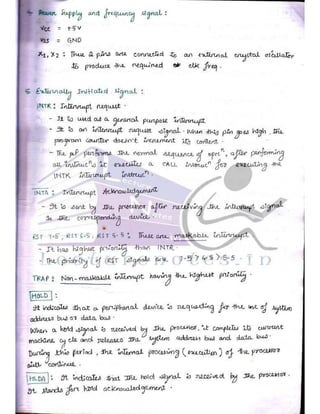 4. Power Supply and frequency signal :
Vcc = +5V
Vss = GND
X1, X2 : These 2 pins are connected to an external crystal oscillator
to produce the required clk freq.
5 Externally Initiated signal :
INTR : Interrupt request -
- It is used as a general purpose interrupt.
- It is an interrupt request signal. When this pin goes high, the
program counter doesn't increment its content.
- The μP performs the normal sequence of oprn, after performing
all instrucn's it executes a CALL instrucn for executing the
INTR interrupt instrucn
INTA : Interrupt Acknowledgement
- It is sent by the processor after receiving the interrupt signal
to the corresponding device.
RST 7.5, RST 6.5, RST 5.5 : These are maskable interrupt
- It has highest priority than INTR.
- The priority of RST signals are -> 7.5 > 6.5 > 5.5
TRAP : Non-maskable interrupt having the highest priority.
HOLD :
It indicates that a peripheral device is requesting for the use of system
address bus or data bus.
When a hold signal is received by the processor, it completes its current
machine cycle and releases the system address bus and data bus.
During this period, the internal processing (execution) of the processor
will continue.
HLDA : It indicates that the hold signal is received by the processor.
It stands for hold acknowledgement.